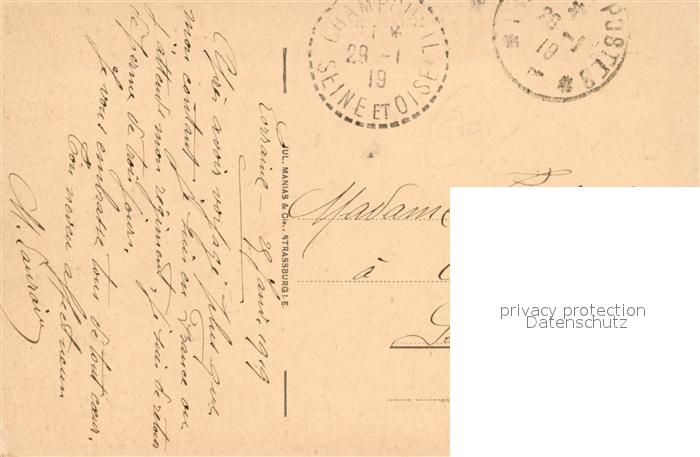 CHAMPCUEIL
29 - 1
19
SEINE ET OISE
POSTES
19
JUL. MANIAS & Cie., STRASSBURG i. E.
Lorraine - 29 Janv. 1919
Après avoir voyagé plus que
mon contant, je suis en France où
j'attends mon régiment, je suis de retour
de perme de jours.
Je vous embrasse tous de tout cœur.
Ton neveu affectueux
Madame
à
privacy protection
Datenschutz